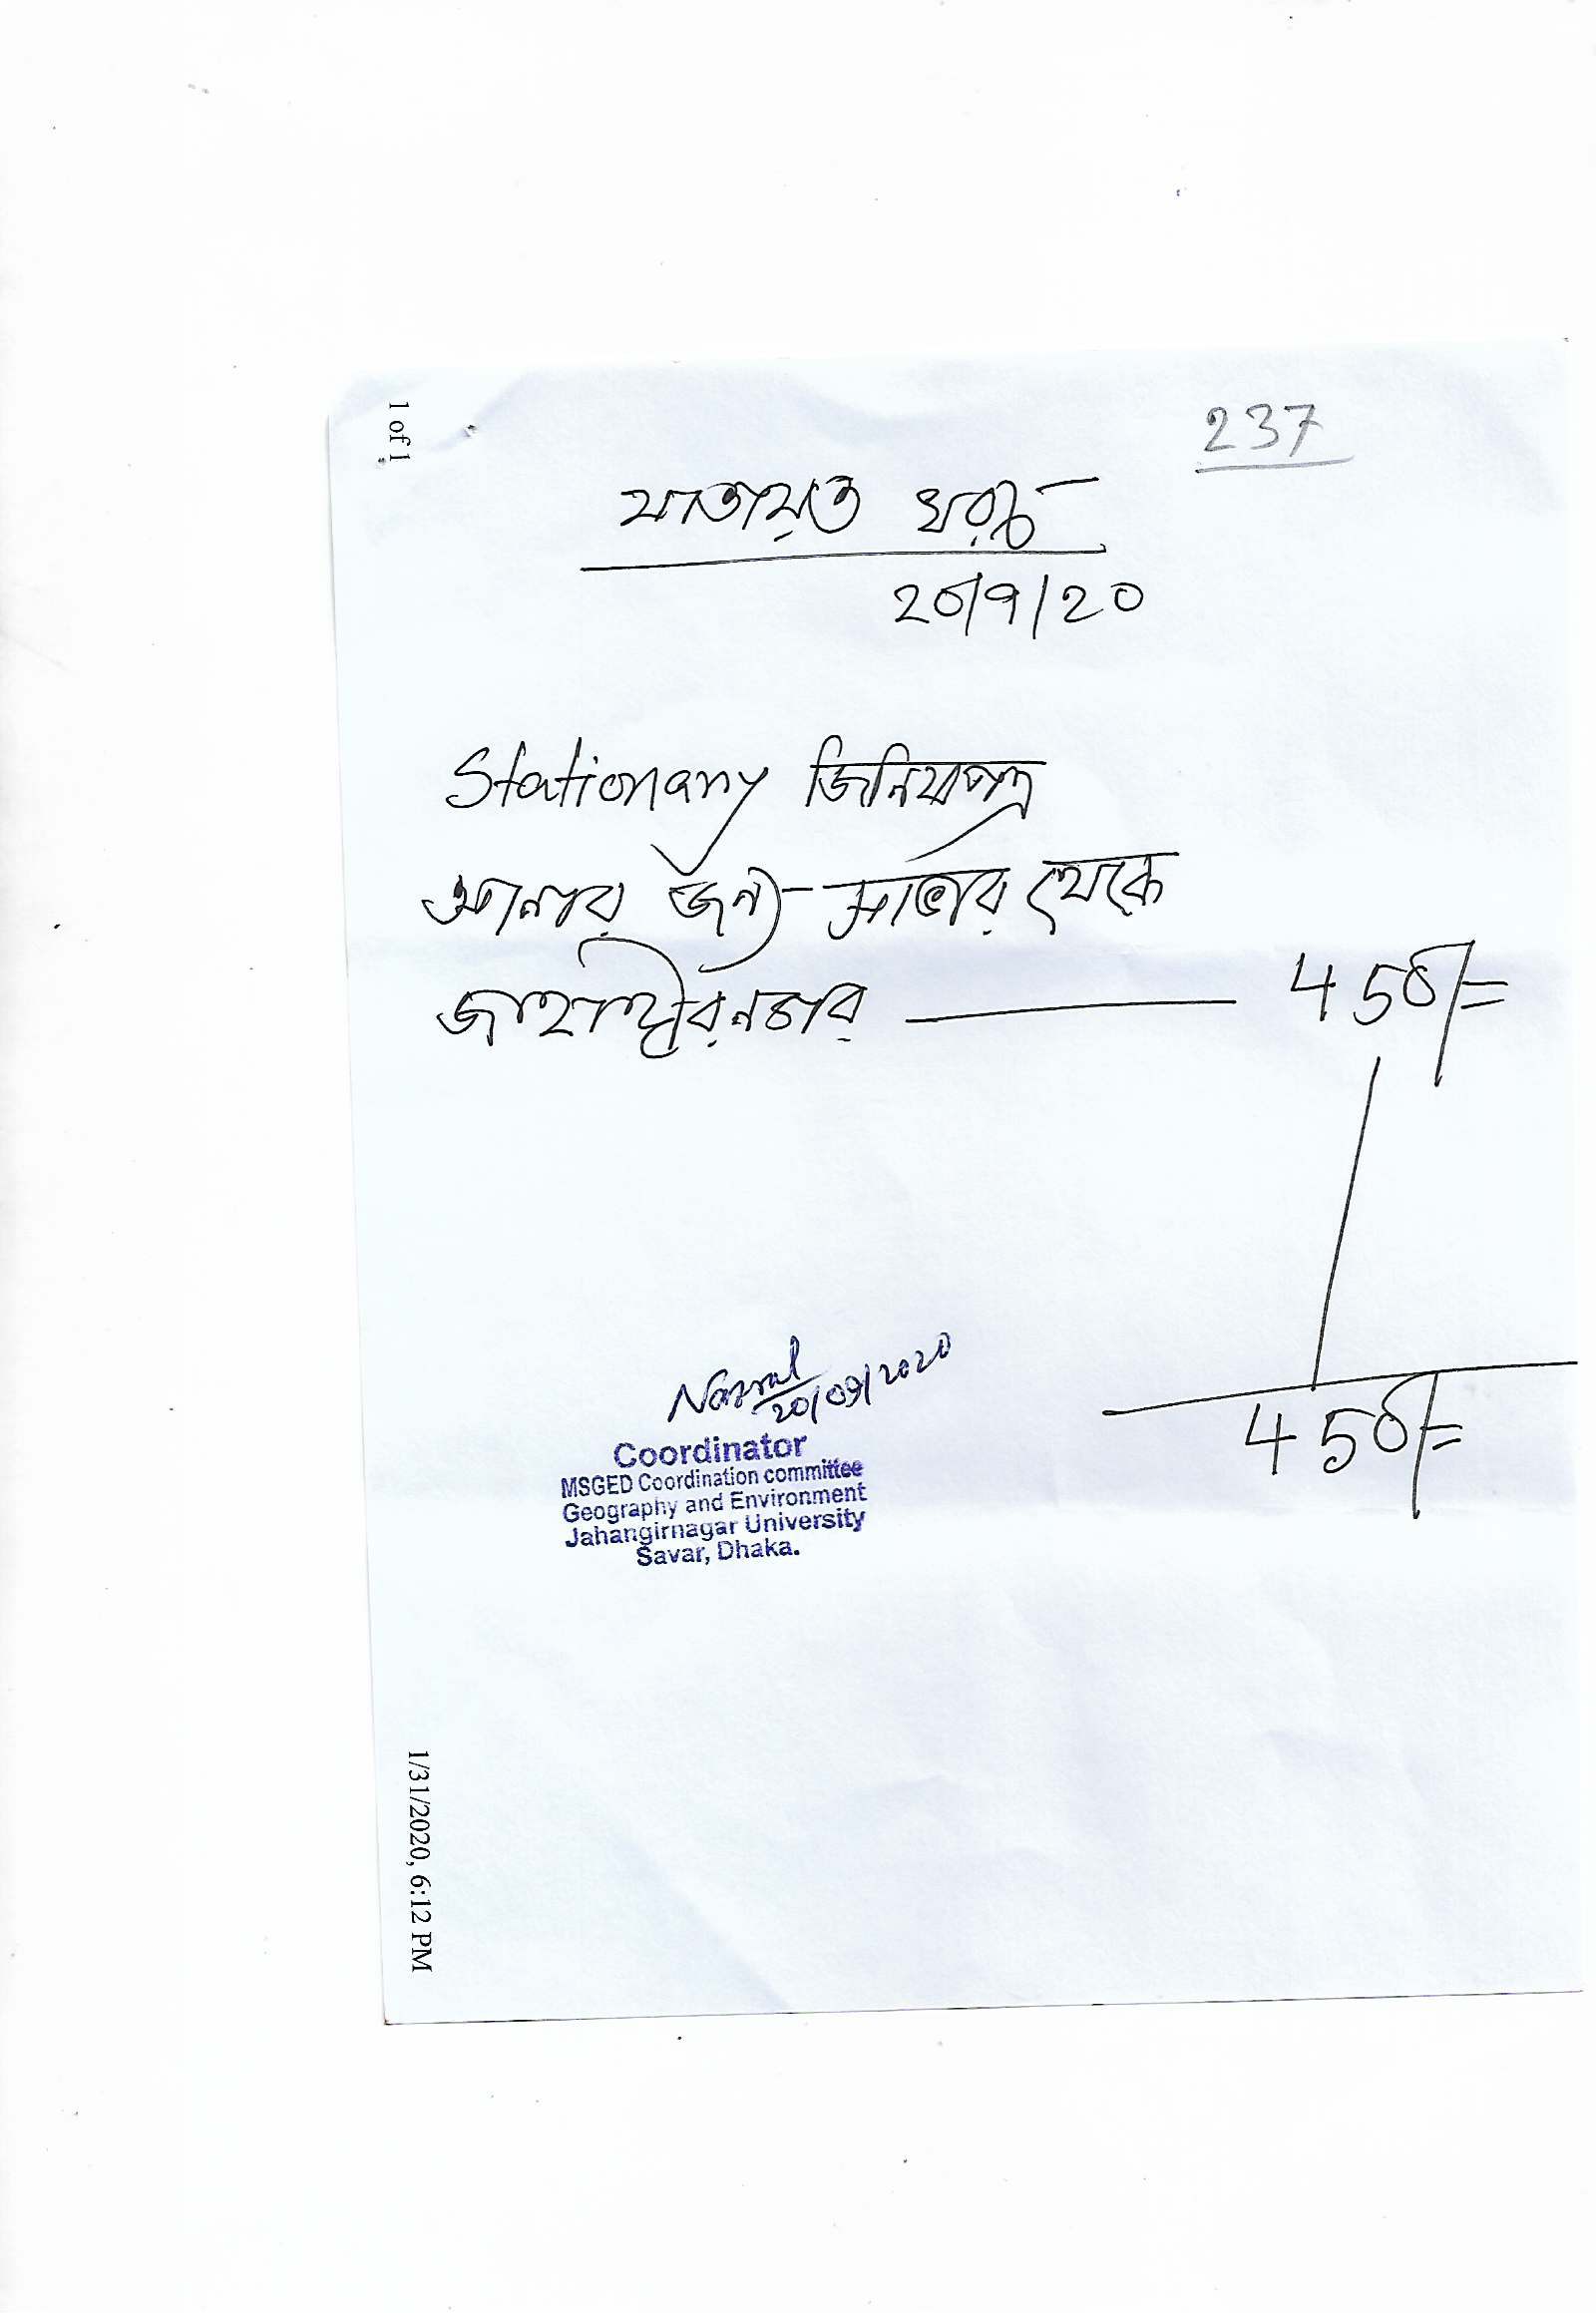 1 of 1
237
যাতায়ত খরচ
20/9/20
Stationary জিনিষপত্র
আনার জন্য সাভার থেকে
জাহাঙ্গীরনগর ——— 450/=
450/=
Nazrul
20/09/2020
Coordinator
MSGED Coordination committee
Geography and Environment
Jahangirnagar University
Savar, Dhaka.
1/31/2020, 6:12 PM